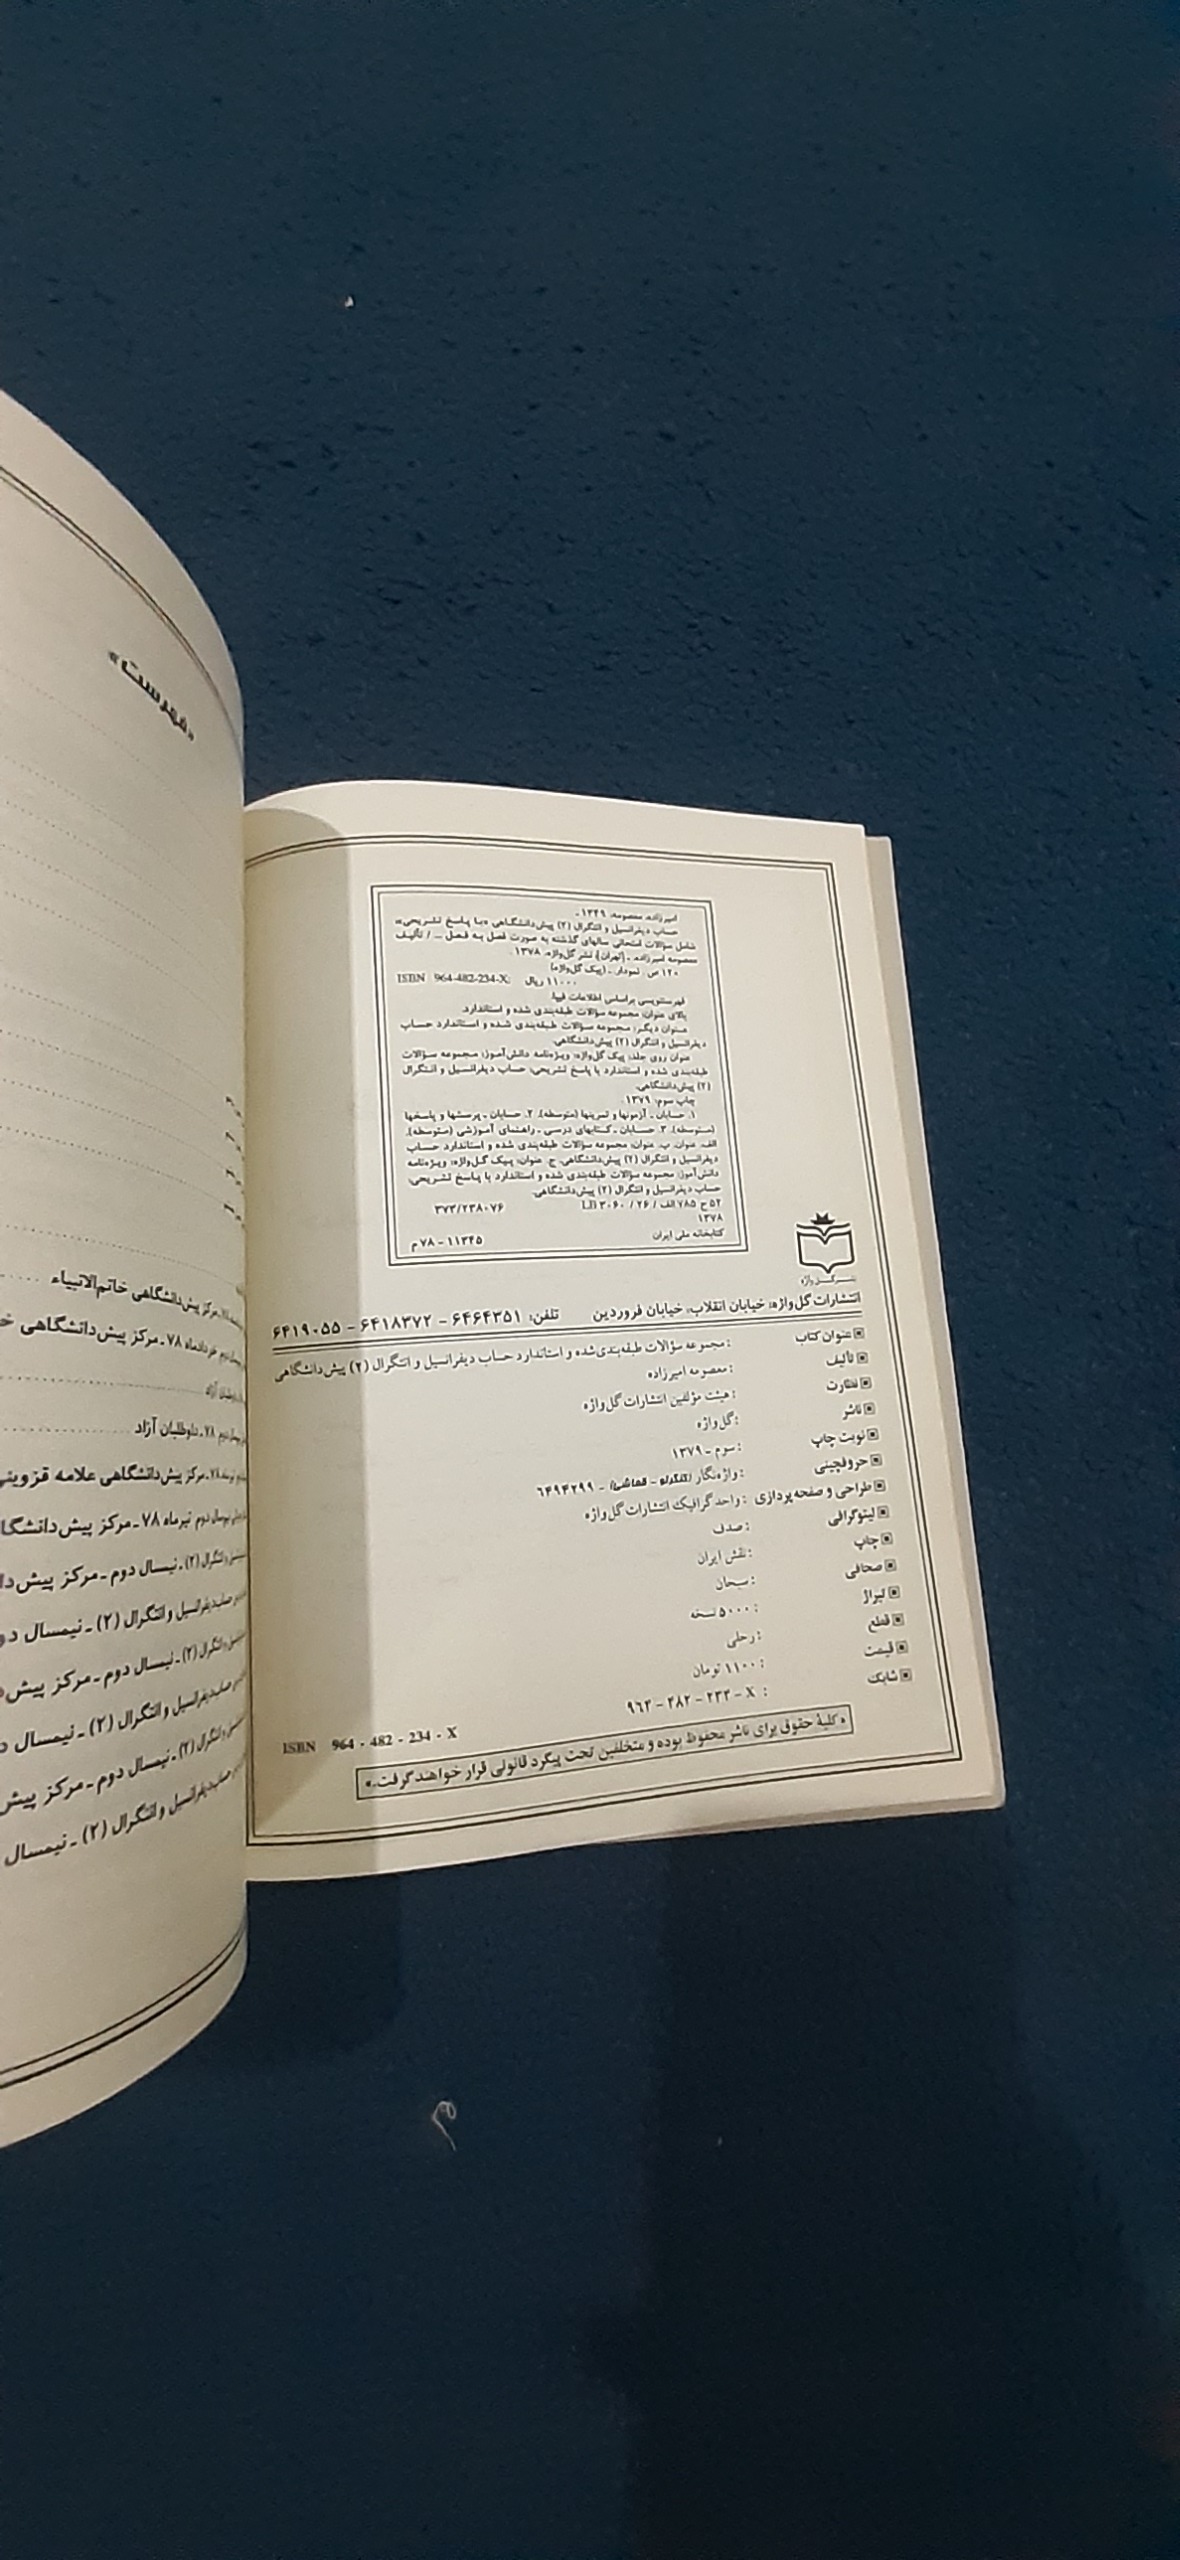 امیرزاده، معصومه، ۱۳۴۹ -
حساب دیفرانسیل و انتگرال (۲) پیش‌دانشگاهی «با پاسخ تشریحی»
شامل سؤالات امتحانی سالهای گذشته به صورت فصل به فصل ... / تألیف
معصومه امیرزاده. - [تهران]: نشر گل‌واژه، ۱۳۷۸.
۱۲۰ ص. نمودار. - (پیک گل‌واژه)
ISBN 964-482-234-X: ۱۱۰۰۰ ریال
فهرستنویسی براساس اطلاعات فیپا.
بالای عنوان: مجموعه سؤالات طبقه‌بندی شده و استاندارد.
عنوان دیگر: مجموعه سؤالات طبقه‌بندی شده و استاندارد حساب
دیفرانسیل و انتگرال (۲) پیش‌دانشگاهی.
عنوان روی جلد: پیک گل‌واژه: ویژه‌نامه دانش‌آموز: مجموعه سؤالات
طبقه‌بندی شده و استاندارد با پاسخ تشریحی: حساب دیفرانسیل و انتگرال
(۲) پیش‌دانشگاهی.
چاپ سوم: ۱۳۷۹.
۱. حسابان - آزمونها و تمرینها (متوسطه). ۲. حسابان - پرسشها و پاسخها
(متوسطه). ۳. حسابان - کتابهای درسی - راهنمای آموزشی (متوسطه).
الف. عنوان. ب. عنوان: مجموعه سؤالات طبقه‌بندی شده و استاندارد حساب
دیفرانسیل و انتگرال (۲) پیش‌دانشگاهی. ج. عنوان: پیک گل‌واژه: ویژه‌نامه
دانش‌آموز: مجموعه سؤالات طبقه‌بندی شده و استاندارد با پاسخ تشریحی:
حساب دیفرانسیل و انتگرال (۲) پیش‌دانشگاهی.
۵۲ ح ۷۸۵ الف / ۲۶ / LB ۳۰۶۰ ۳۷۳/۲۳۸۰۷۶
۱۳۷۸
کتابخانه ملی ایران ۱۱۳۴۵ - ۷۸ م
نشر گل واژه
انتشارات گل‌واژه: خیابان انقلاب، خیابان فروردین تلفن: ۶۴۶۴۳۵۱ - ۶۴۱۸۳۷۲ - ۶۴۱۹۰۵۵
عنوان کتاب : مجموعه سؤالات طبقه‌بندی‌شده و استاندارد حساب دیفرانسیل و انتگرال (۲) پیش‌دانشگاهی
تألیف : معصومه امیرزاده
نظارت : هیئت مؤلفین انتشارات گل‌واژه
ناشر : گل‌واژه
نوبت چاپ : سوم - ۱۳۷۹
حروفچینی : واژه‌نگار - ۶۴۹۴۲۹۹
طراحی و صفحه‌پردازی : واحد گرافیک انتشارات گل‌واژه
لیتوگرافی : صدف
چاپ : نقش ایران
صحافی : سبحان
تیراژ : ۵۰۰۰ نسخه
قطع : رحلی
قیمت : ۱۱۰۰ تومان
شابک : ۹۶۴ - ۴۸۲ - ۲۳۴ - X
ISBN 964 - 482 - 234 - X
«کلیهٔ حقوق برای ناشر محفوظ بوده و متخلفین تحت پیگرد قانونی قرار خواهند گرفت.»
«فهرست»
مرکز پیش‌دانشگاهی خاتم‌الانبیاء
خردادماه ۷۸ - مرکز پیش‌دانشگاهی
۷۸ - داوطلبان آزاد
۷۸ - مرکز پیش‌دانشگاهی علامه قزوینی
نیمسال دوم تیرماه ۷۸ - مرکز
و انتگرال (۲) - نیمسال دوم - مرکز
دیفرانسیل و انتگرال (۲) - نیمسال
و انتگرال (۲) - نیمسال دوم - مرکز
دیفرانسیل و انتگرال (۲) - نیمسال
و انتگرال (۲) - نیمسال دوم - مرکز
دیفرانسیل و انتگرال (۲) - نیمسال